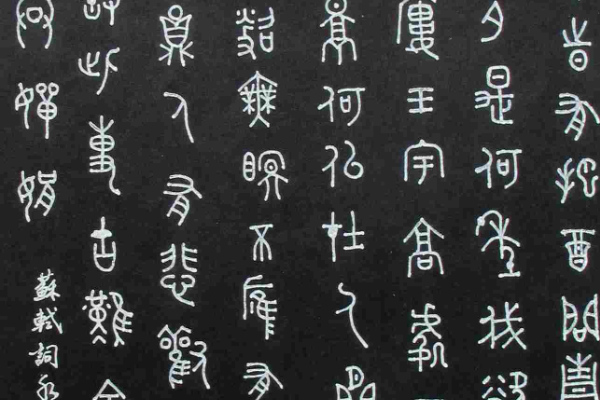 旹有把酉問青
夕是何年我欲
樓玉宇高處
影何似在人間
照無眠不應有
圓人有悲歡
缺此事古難全
嬋娟
蘇軾詞水